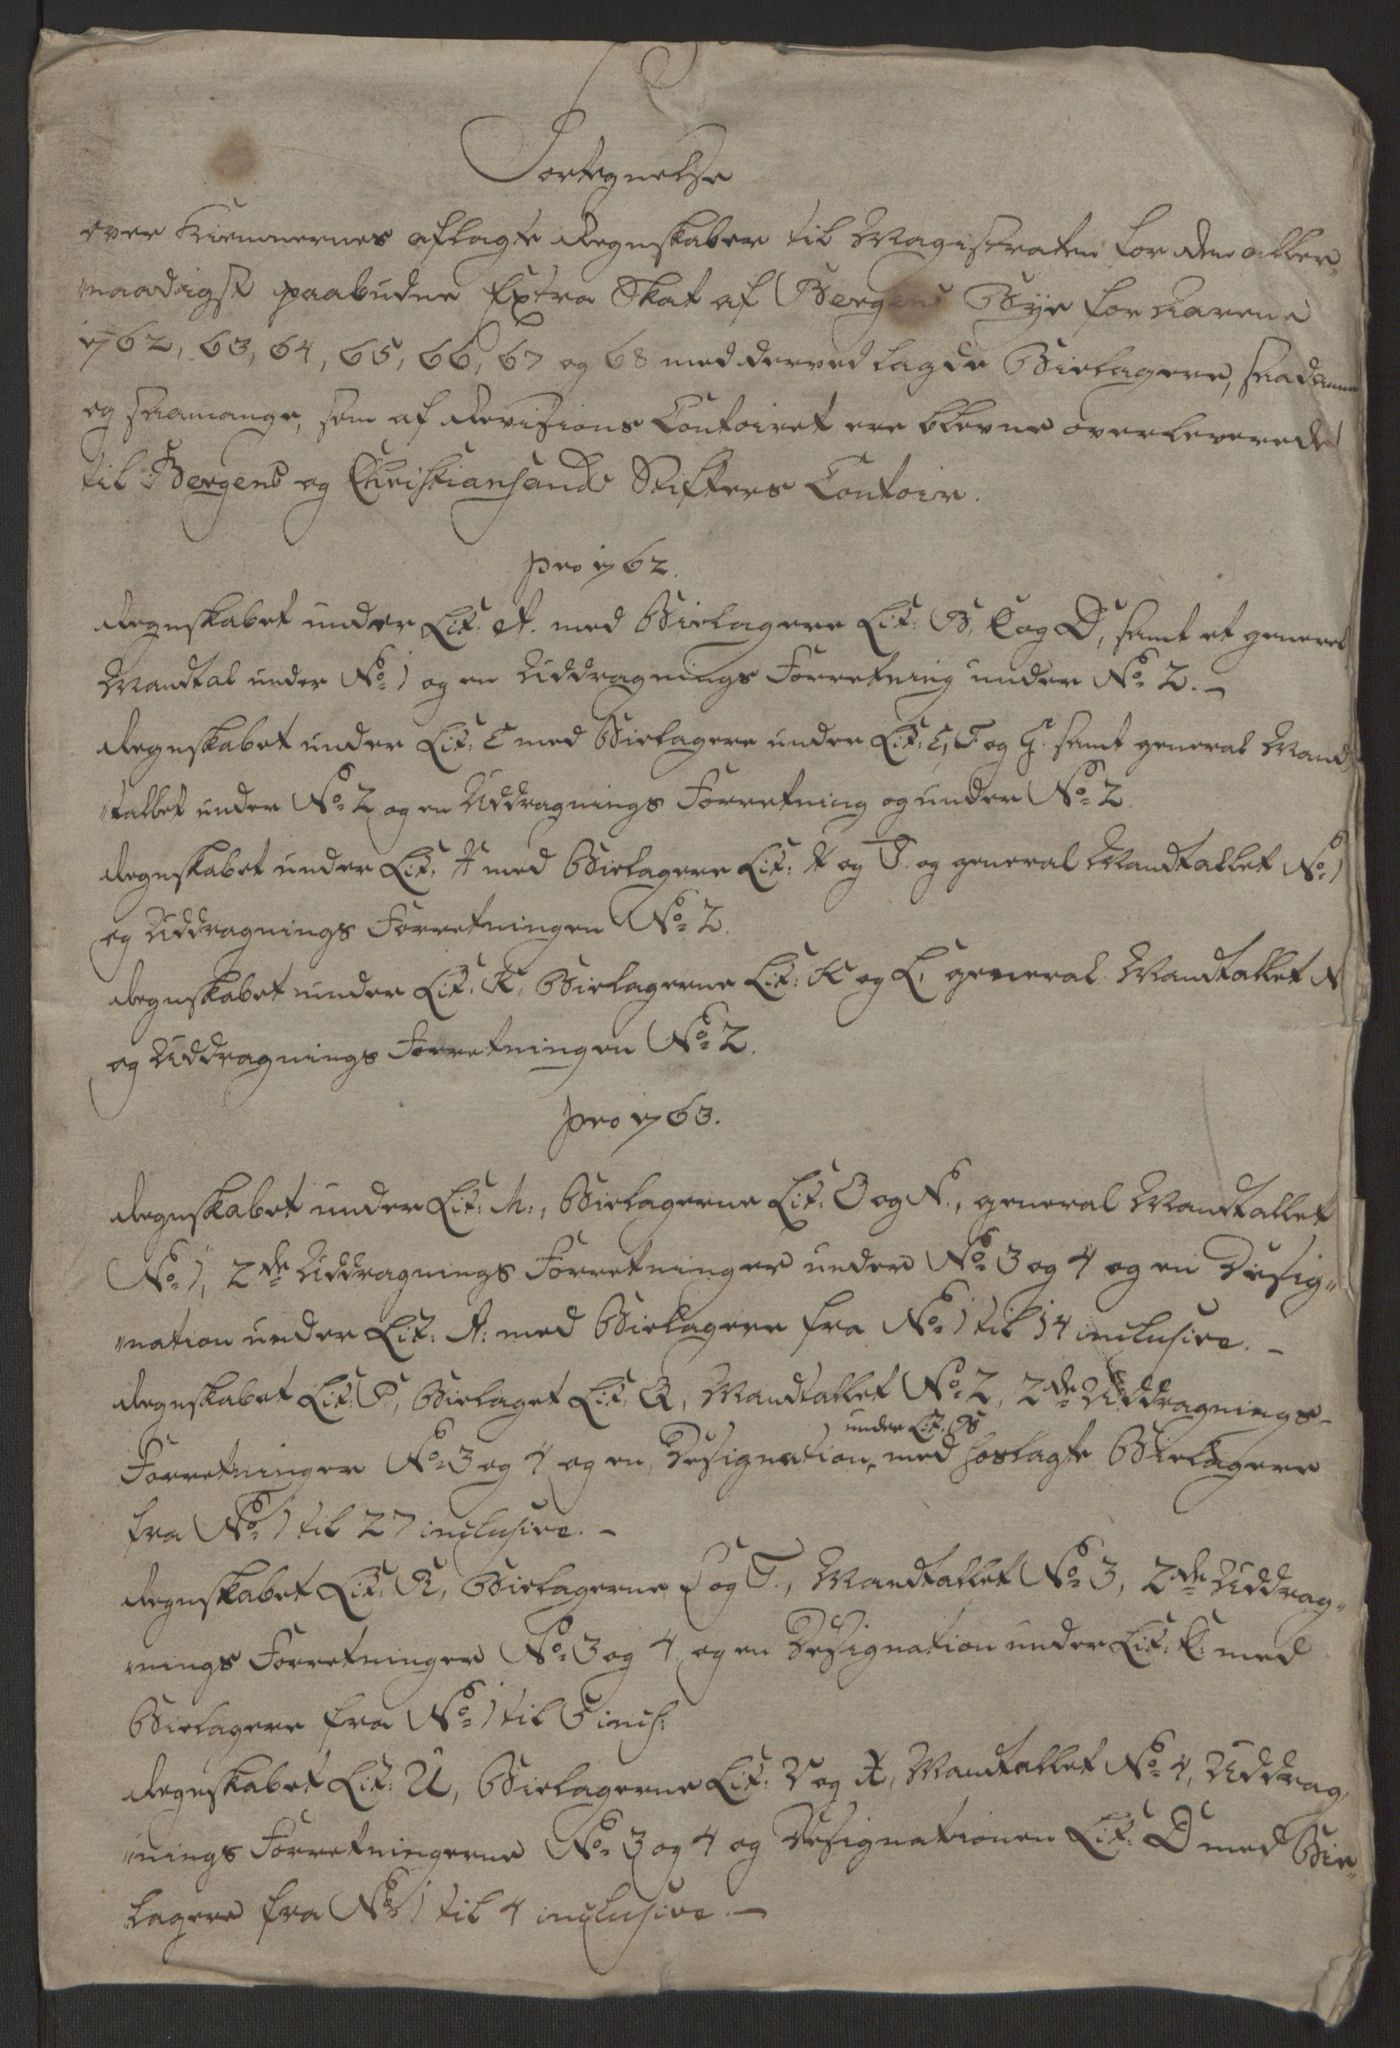 Fortegnelse
over Kiemnernes aflagte Regnskaber til Magistraten for den aller-
naadigst paabudne Extra Skat af Bergens Bye for Aarene
1762, 63, 64, 65, 66, 67 og 68 med derved lagde Bielagere, saadanne
og saamange, som af Revisions Contoiret ere blevne overleverede
til Bergens og Christiansands Stifters Contoir.
pro 1762.
Regnskabet under Lit: A. med Bielagere Lit: B, C og D, samt et general
Mandtal under No 1 og en Uddragnings Forretning under No 2. –
Regnskabet under Lit: E med Bielagere under Lit: E, F og G. samt general Mand-
tallet under No 2 og en Uddragnings Forretning og under No 2.
Regnskabet under Lit: H med Bielagere Lit: H og I. og general Mandtallet No 1
og Uddragnings Forretningen No 2.
Regnskabet under Lit: K, Bielagerne Lit: K og L, general Mandtallet N
og Uddragnings Forretningen No 2.
pro 1763.
Regnskabet under Lit: M:, Bielagerne Lit: O og N., general Mandtallet
No 1, 2de Uddragnings Forretninger under No 3 og 4 og en Desig-
nation under Lit: A: med Bielagere fra No 1 til 14 inclusive. –
Regnskabet Lit: P, Bielaget Lit: Q, Mandtallet No 2, 2de Uddragnings-
Forretninger No 3 og 4 og en Designation under Lit: B med hoslagte Bielagere
fra No 1 til 27 inclusive. –
Regnskabet Lit: R, Bielagerne S og T., Mandtallet No 3, 2de Uddrag-
nings Forretninger No 3 og 4 og en Designation under Lit: C: med
Bielagere fra No 1 til 5 incl:
Regnskabet Lit: U, Bielagerne Lit: V og X, Mandtallet No 4, Uddrag-
nings Forretningerne No 3 og 4 og Designationen Lit: D med Bie-
lagere fra No 1 til 4 inclusive. –